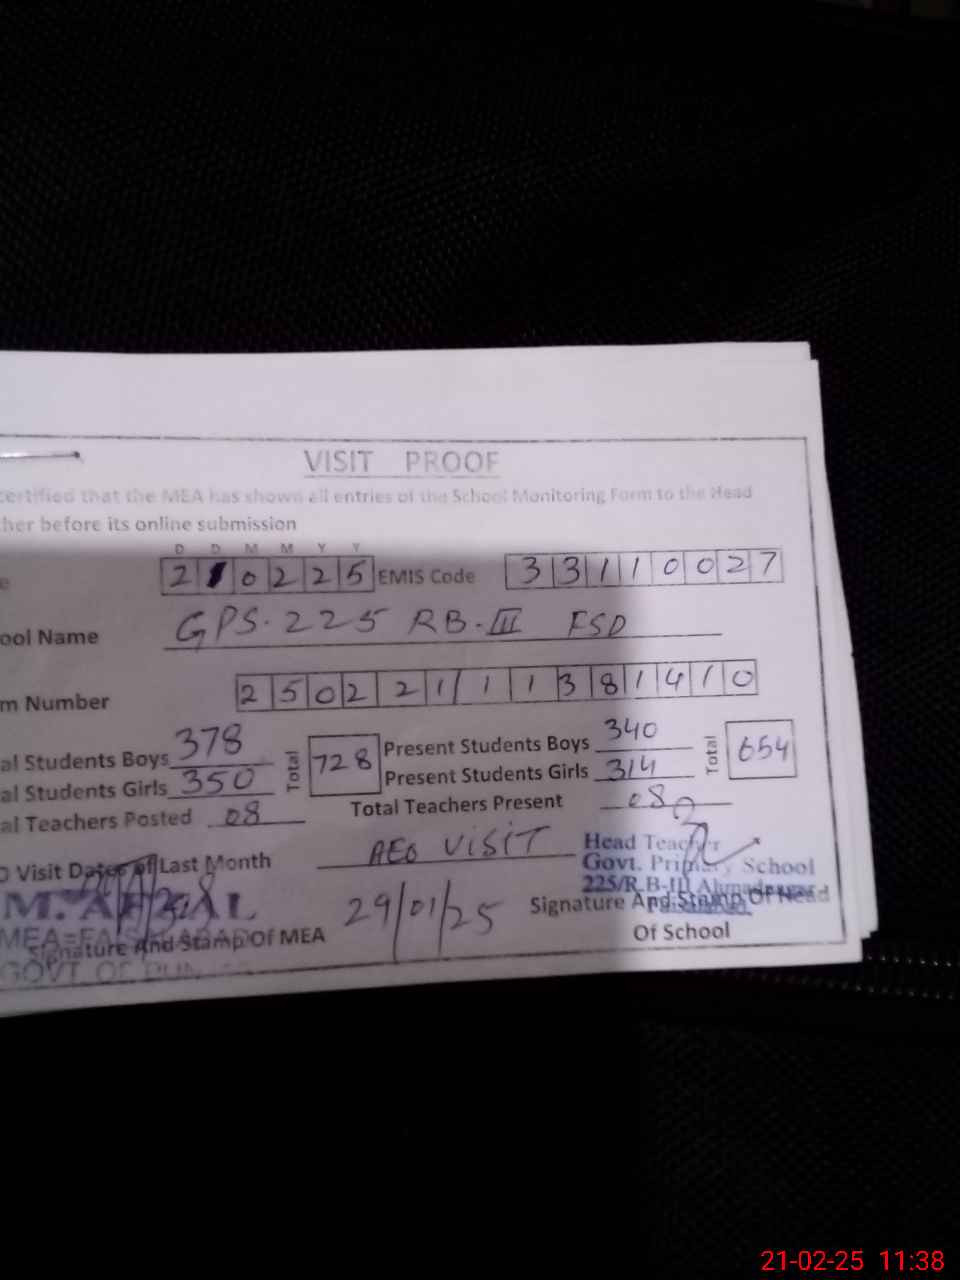 VISIT PROOF
certified that the MEA has shown all entries of the School Monitoring Form to the Head
her before its online submission
D D M M Y Y
e 2 1 0 2 2 5 EMIS Code 3 3 1 1 0 0 2 7
ool Name GPS. 225 RB-III FSD
m Number 2 5 0 2 2 1 1 1 1 3 8 1 4 1 0
al Students Boys 378 Total 728 Present Students Boys 340 Total 654
al Students Girls 350 Present Students Girls 314
al Teachers Posted 08 Total Teachers Present 08
O Visit Dates of Last Month AEO VISIT
29/01/25
M. AFZAL
MEA=FAISALABAD
GOVT OF PUN
Signature And Stamp Of MEA
Head Teacher
Govt. Primary School
225/R.B-III Ahmadnagar
Faisalabad.
Signature And Stamp Of Head
Of School
21-02-25 11:38